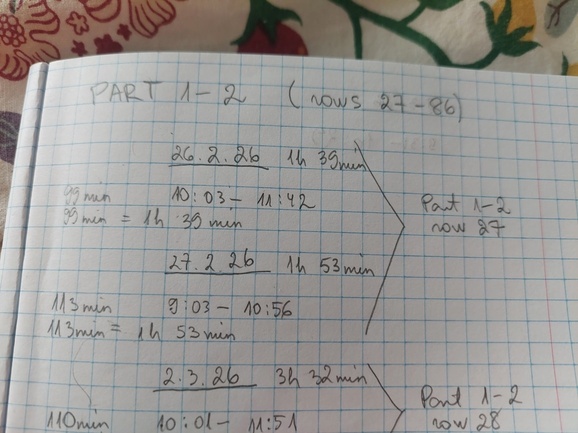 PART 1-2 (rows 27-86)
26.2.26 1h 39min
99min 10:03 - 11:42
99min = 1h 39min
Part 1-2
row 27
27.2.26 1h 53min
113min 9:03 - 10:56
113min = 1h 53min
2.3.26 3h 32min
Part 1-2
110min 10:01 - 11:51
row 28